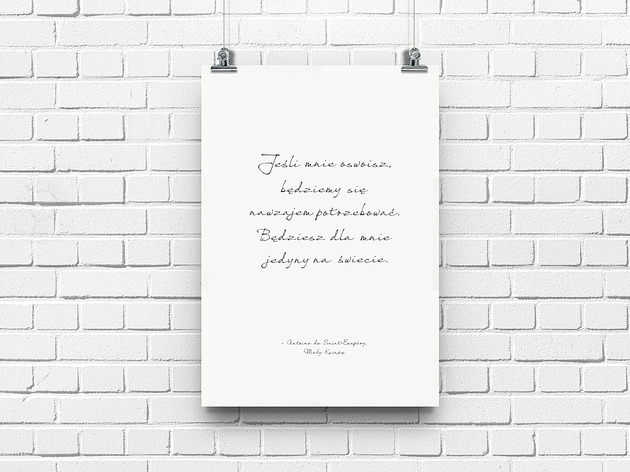 Jeśli mnie oswoisz,
będziemy się
nawzajem potrzebować.
Będziesz dla mnie
jedyny na świecie.
- Antoine de Saint-Exupéry,
Mały Książę